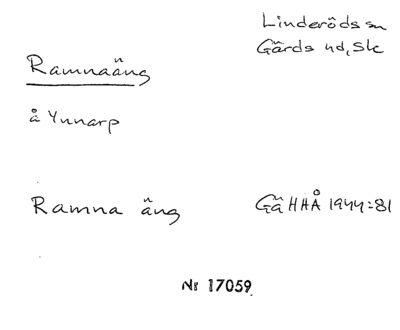 Linderöds sn
Gärds hd, Skc
Ramnaäng
å Ynnarp
Ramna äng
Gä HHÅ 1944:81
Nr 17059